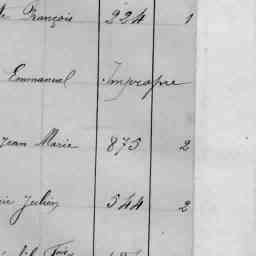 François 224 1
Emmanuel Impropre
Jean Marie 875 2
Julien 544 2